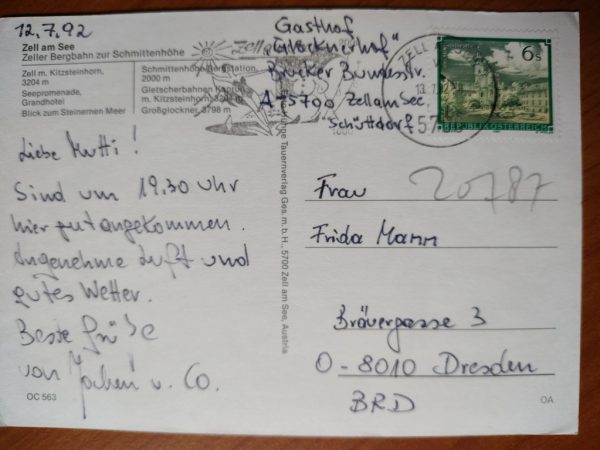 12.7.92
Zell am See
Zeller Bergbahn zur Schmittenhöhe
Zell m. Kitzsteinhorn,
3204 m
Seepromenade,
Grandhotel
Blick zum Steinernen Meer
2000 m
Gletscherbahnen
m. Kitzsteinhorn
Großglockner, 3798 m
Gasthof
"Glocknerhof"
Brucker Bundesstr.
A-5700 Zell am See
Schüttdorf
6s
REPUBLIK ÖSTERREICH
Liebe Mutti!
Sind um 19.30 Uhr
hier gut angekommen.
Angenehme Luft und
gutes Wetter.
Beste Grüße
von Jochen u. Co.
Tauernverlag Ges.m.b.H., 5700 Zell am See, Austria
20787
Frau
Frida Mann
Brävergasse 3
O-8010 Dresden
BRD
OC 563
OA